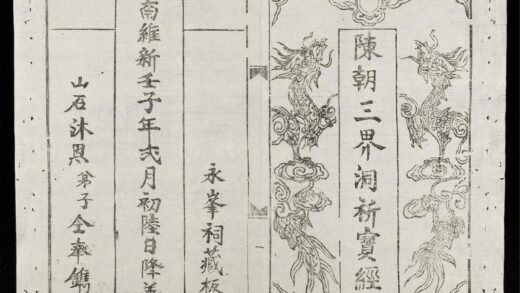 陳朝三界洞祈寶經
永峯祠藏板
南維新壬子年弍月初陸日降
山石沐恩弟子仝奉鐫